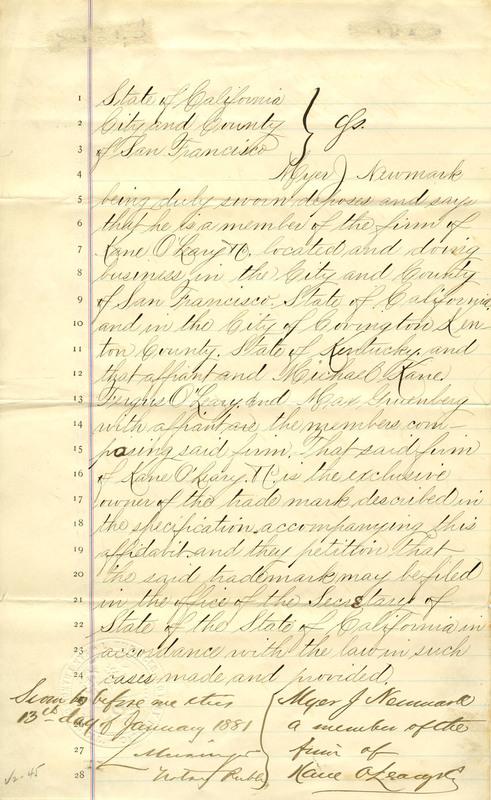 1 State of California
2 City and County } ss.
3 of San Francisco
4 Myer J Newmark
5 being duly sworn deposes and says
6 that he is a member of the firm of
7 Kane O'Leary & Co. located and doing
8 business in the City and County
9 of San Francisco. State of California.
10 and in the City of Covington Ken
11 ton County. State of Kentucky. and
12 that affiant and Michael Kane.
13 Fergus O'Leary. and Max Gruenberg
14 with affiant are the members com-
15 posing said firm. That said firm
16 of Kane O'Leary & Co. is the exclusive
17 owner of the trade mark described in
18 the specification accompanying this
19 affidavit and they petition That
20 the said trademark may be filed
21 in the office of the Secretary of
22 State of the State of California in
23 accordance with the law in such
24 cases made and provided.
Sworn to before me this
13th day of January 1881
27
28 Notary Public
Myer J Newmark
a member of the
firm of
Kane O'Leary & Co